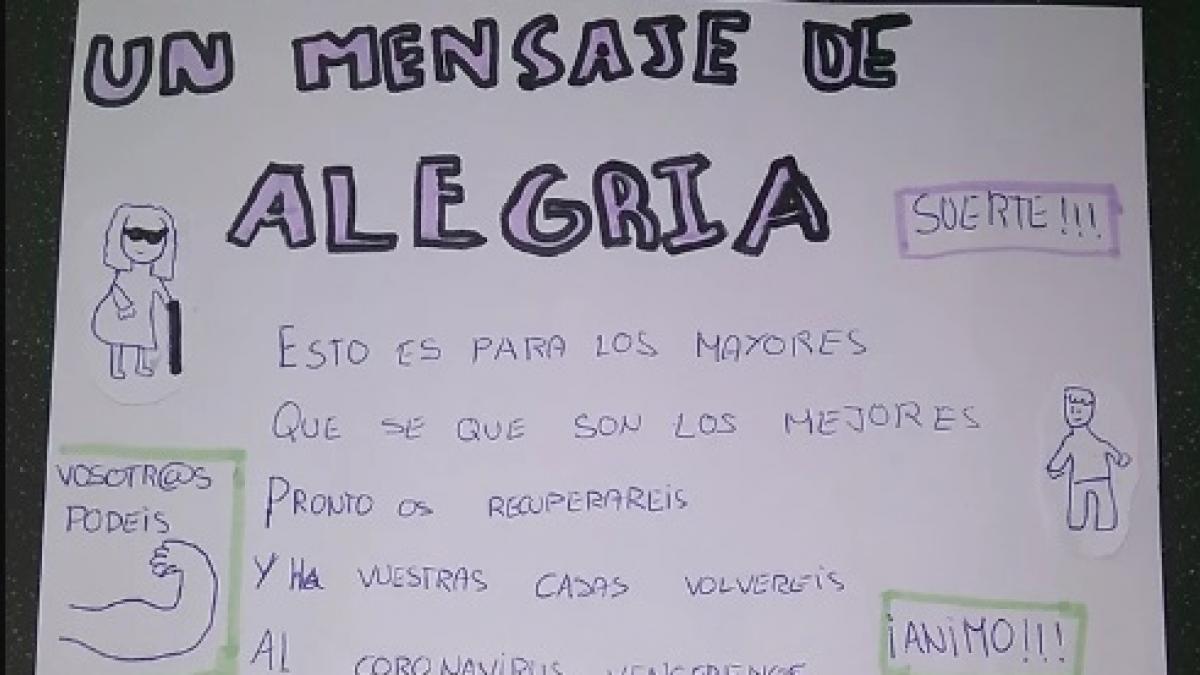 UN MENSAJE DE
ALEGRIA
SUERTE!!!
ESTO ES PARA LOS MAYORES
QUE SE QUE SON LOS MEJORES
VOSOTR@S
PODEIS
PRONTO OS RECUPERAREIS
Y HA VUESTRAS CASAS VOLVEREIS
¡ANIMO!!!
AL CORONAVIRUS